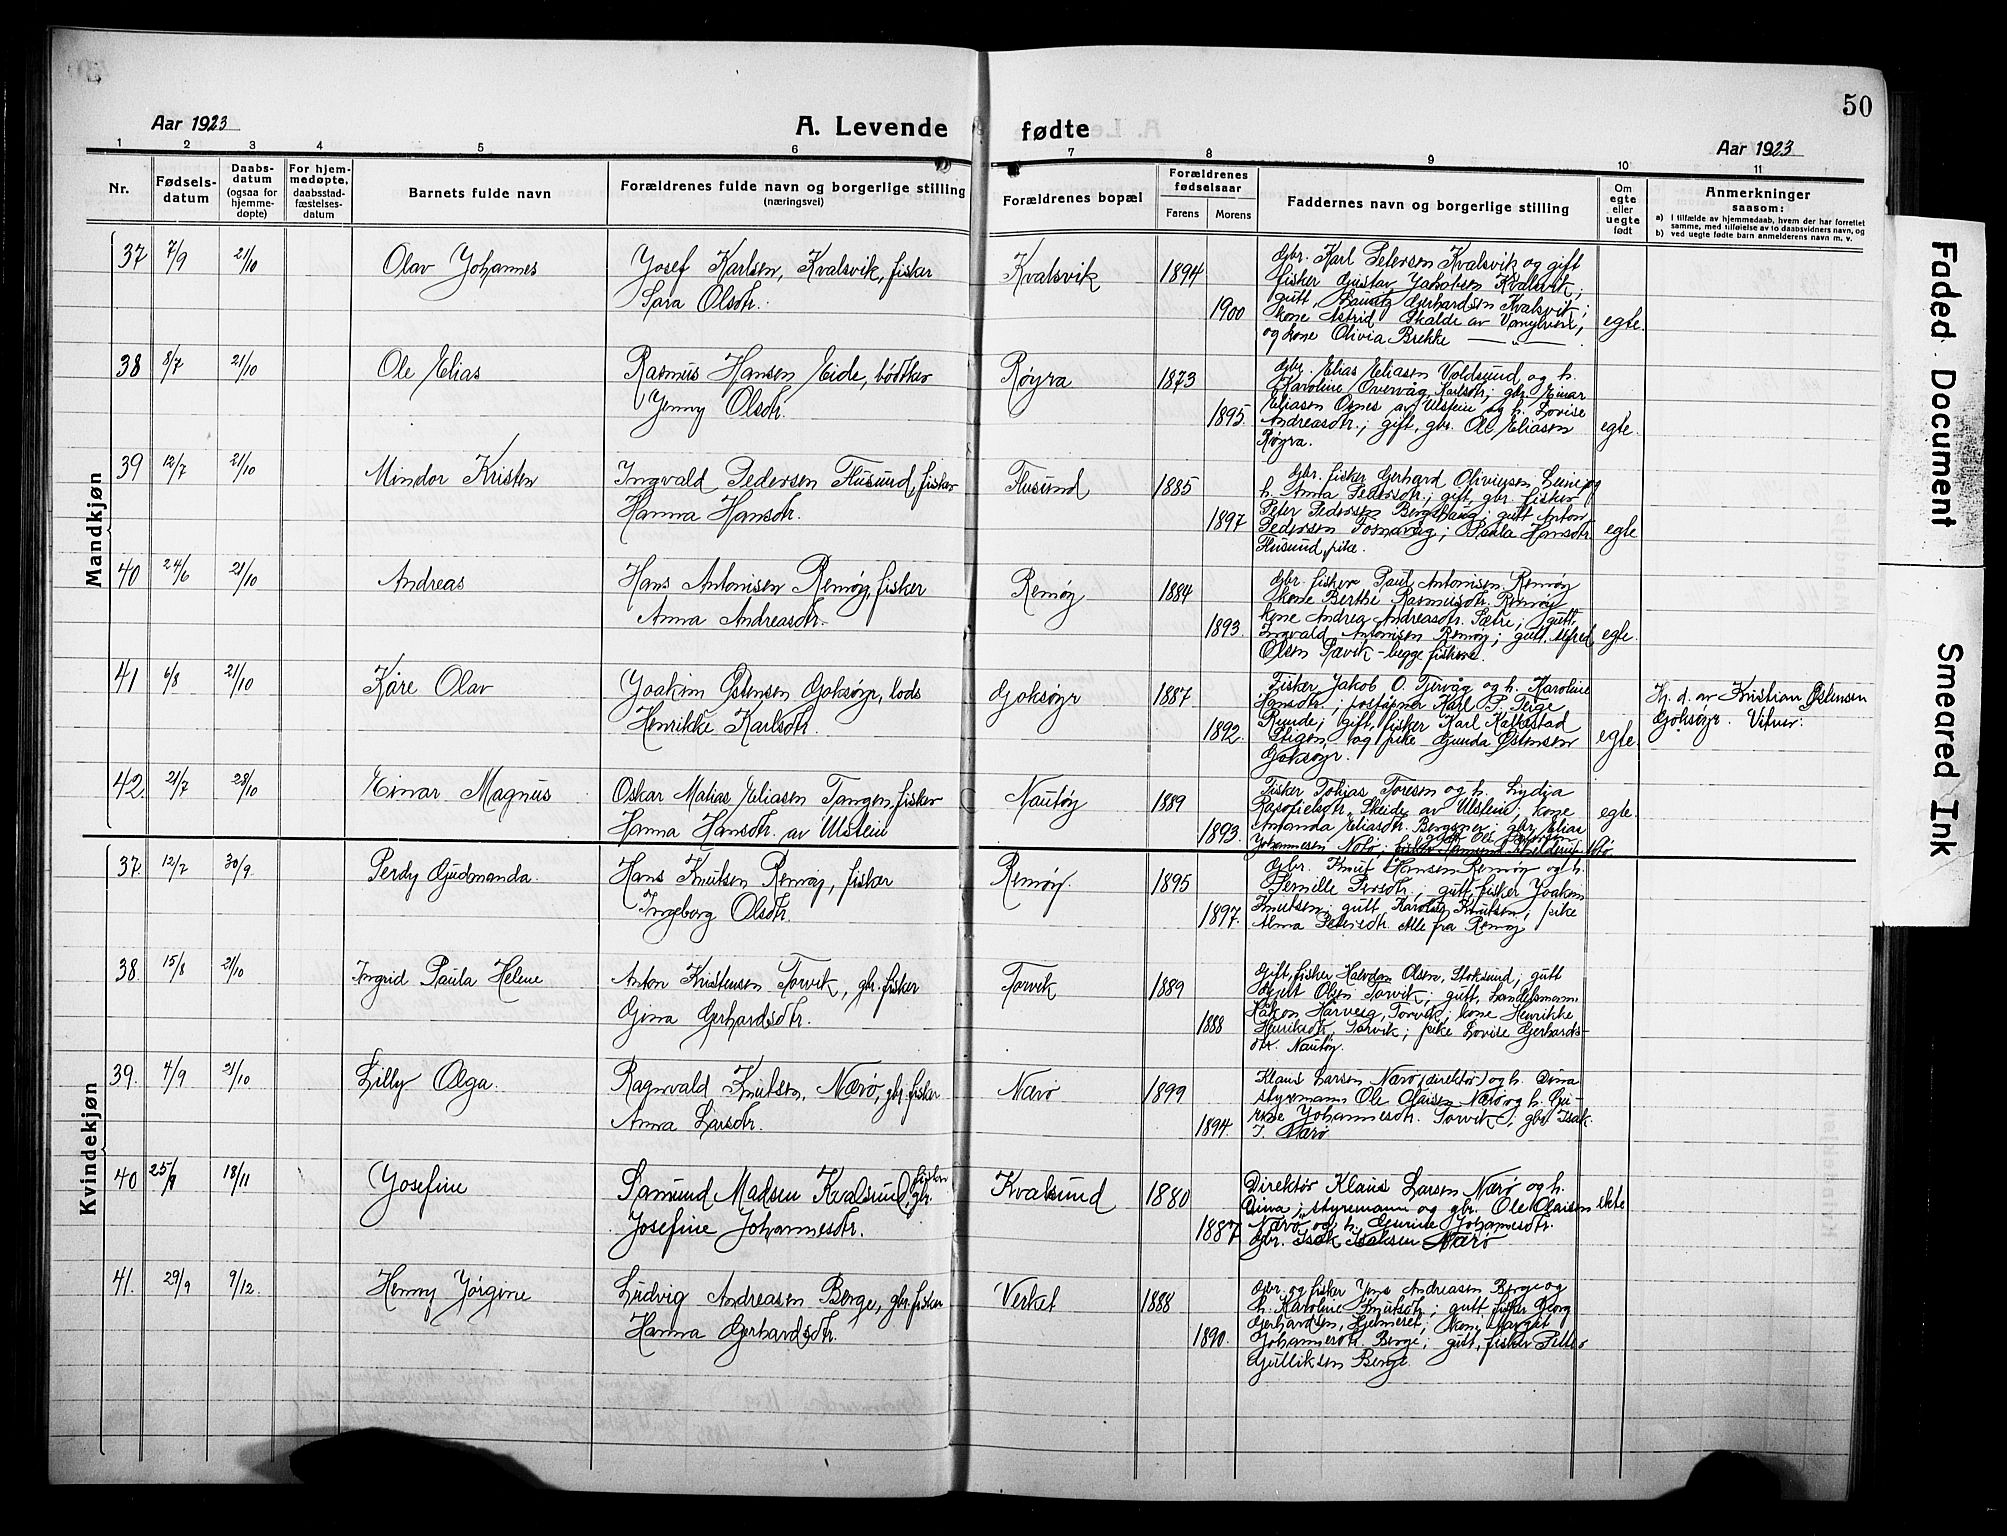 50
Aar 1923
A. Levende fødte
Aar 1923
1 2 3 4 5 6 7 8 9 10 11
Nr.
Fødsels-
datum
Daabs-
datum
(ogsaa for
hjemme-
døpte)
For hjem-
medøpte,
daabsstad-
fæstelses-
datum
Barnets fulde navn
Forældrenes fulde navn og borgerlige stilling
(næringsvei)
Forældrenes bopæl
Forældrenes
fødselsaar
Farens Morens
Faddernes navn og borgerlige stilling
Om
egte
eller
uegte
født
Anmerkninger
saasom:
a) i tilfælde av hjemmedaab, hvem der har forrettet
samme, med tilføielse av to daabsvidners navn, og
b) ved uegte fødte barn anmelderens navn m. v.
Mandkjøn
37 7/9 21/10 Olav Johannes
Josef Karlsen, Kvalsvik, fisker
Sara Olsdtr.
Kvalsvik 1894
1900
Gbr. Karl Petersen Kvalsvik og gift
fisker Gustav Jakobsen Kvalsvik;
gutt, Gerhardsen Kvalsvik;
kone Astrid Skalde av Vanylven;
og kone Olivia Brekke
egte.
38 8/7 21/10 Ole Elias
Rasmus Hansen Eide, bødtker
Jenny Olsdtr.
Røyra 1873
1895.
Gbr. Elias Eliasen Voldsund og h.
Karoline Overvåg, Karlsdtr; gbr. Einar
Eliasen Osnes av Ulstein og h. Lovise
Andreasdtr.; gift, gbr. Ole Eliasen
Røyra.
egte.
39 12/7 21/10 Mindor Kristen
Ingvald Pedersen Flusund, fisker
Hanna Hansdtr.
Flusund 1885
1897
Gbr. fisker Gerhard Oliviusen Leine og
h. Anna Pedersdtr.; gift, gbr. fisker
Peter Pedersen Berghaug; gutt Anton
Pedersen Fosnavåg; Paula Hansdtr.
Flusund, pike.
egte
40 24/6 21/10 Andreas
Hans Antonisen Remøy, fisker
Anna Andreasdtr.
Remøy 1884
1893.
Gbr. fisker Paul Antonisen Remøy
kone Berthe Rasmusdtr. Remøy
kone Andrea Andreasdtr. Sætre; gutt,
Ingvald Antonisen Remøy; gutt Alfred
Olsen Sævik - begge fiskere.
egte.
41 6/8 21/10 Kåre Olav
Joakim Østensen Goksøyr, lods
Henrikke Karlsdtr.
Goksøyr 1887
1892.
Fisker Jakob O. Tjervåg og h. Karoline
Hansdtr.; poståpner Karl P.
Runde; gift, fisker Karl
Stigen, og pike Gunda Østensen
Goksøyr.
egte.
Hj. d. av Kristian Østensen
Goksøyr.
42. 21/7 28/10 Einar Magnus
Oskar Matias Eliasen Tangen, fisker
Hanna Hansdtr. av Ulstein
Nautøy 1889
1893.
Fisker Tobias Toresen og h. Lydia
Skeide av Ulstein; kone
Amanda Eliasdtr. Bergsnes; gbr. Elias
Johannesen
egte.
Kvindekjøn
37. 12/7 30/9. Perdy Gudmanda.
Hans Knutsen Remøy, fisker
Ingeborg Olsdtr.
Remøy. 1895
1897.
Gbr. Knut Hansen Remøy og h.
Pernille Persdtr.; gutt, fisker Joakim
Knutsen; gutt Karolus Knutsen; pike
Alma Petersdtr. Alle fra Remøy
38. 15/8 21/10 Ingrid Paula Helene
Anton Kristensen Torvik, gbr. fisker
Gina Gerhardsdtr.
Torvik 1889
1888
Gift, fisker Halvdan Olsen, Stoksund; gutt
Olsen Torvik; gutt, handelsmann
Håkon Torvik; kone Henrikke
Henriksdtr. Torvik; pike Lovise Gerhards-
dtr. Nautøy.
39. 4/9 21/10 Lilly Olga.
Ragnvald Knutsen, Nærø, gbr. fisker
Anna Larsdtr.
Nærø 1899
1894.
Klaus Larsen Nærø (direktør) og h. Dina
styrmann Ole Olaisen Nærø og h. Gu-
rine Johannesdtr. Torvik; gbr. Isak
I. Nærø
40 25/9 18/11 Josefine
Samund Madsen Kvalsund, fisker. gbr.
Josefine Johannesdtr.
Kvalsund 1880
1887
Direktør Klaus Larsen Nærø og h.
Dina; styrmann og gbr. Ole Olaisen
Nærø og h. Gurine Johannesdtr.
Gbr. Isak Isaksen Nærø
ekte
41. 29/9 9/12. Henny Jørgine
Ludvig Andreasen Berge, gbr. fisker
Hanna Gerhardsdtr.
Verket 1888
1890.
Gbr. og fisker Jens Andreasen Berge og
h. Karoline Knutsdtr.; gutt fisker Georg
Gerhardsen, Hjelmeset; Margit
Johannesdtr. Berge; gutt, fisker Petter
Gulliksen Berge.
Faded Document
Smeared Ink